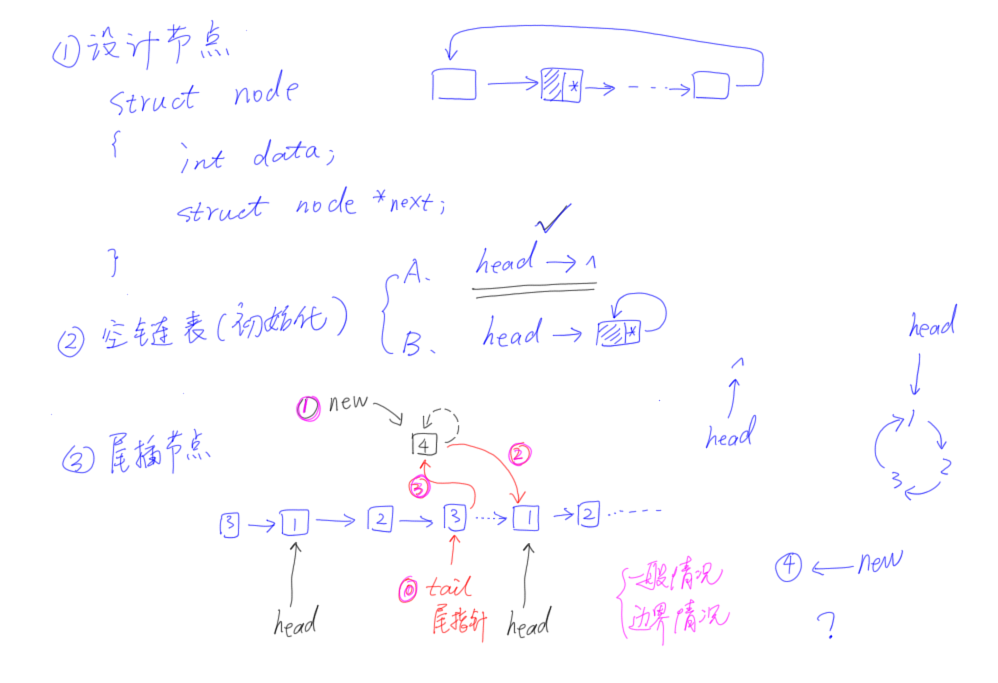 ① 设计节点
struct node
{
int data;
struct node *next;
}
*
② 空链表(初始化)
A、 head → ^
B、 head → *
^
head
head
1
2
3
③ 尾插节点
① new
4
②
③
3 → 1 → 2 → 3 → 1 → 2
head
⓪ tail
尾指针
head
一般情况
边界情况
④ ← new
?